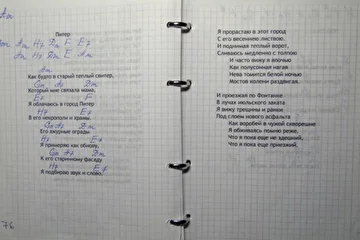 Am
Питер
Am H7 Dm F E7
Am H7 Dm E Am
Am
Как будто в старый теплый свитер,
Gm A7 Dm
Который мне связала мама,
E7 F
Я облачаюсь в город Питер
H7 E7
В его некрополи и храмы.
Gm A7 Dm
Его ажурные ограды
H7 E7
Я примеряю как обнову,
Gm A7 Dm
К его старинному фасаду
H7 E7
Я подбираю звук и слово,
76
Я прорастаю в этот город
С его весеннею листвою.
И поднимая теплый ворот,
Сливаюсь медленно с толпою
И часто вижу я воочью
Как полусонная нагая
Нева томится белой ночью
Мостов колени раздвигая.
И проезжая по Фонтанке
В лучах июльского заката
Я вижу трещины и ранки
Под слоем нового асфальта
Как воробей в чужой скворешне
Я обживаюсь помню реже,
Что я пока еще не здешний,
Что я пока еще приезжий.